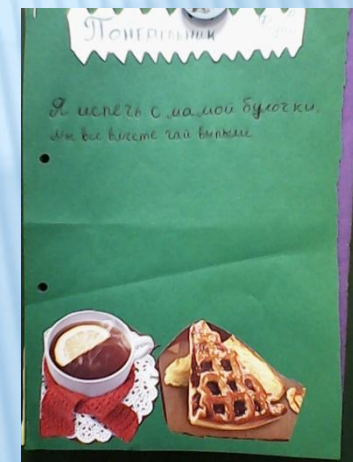 Понедельник
Я испечь с мамой булочки.
мы все вместе чай выпили